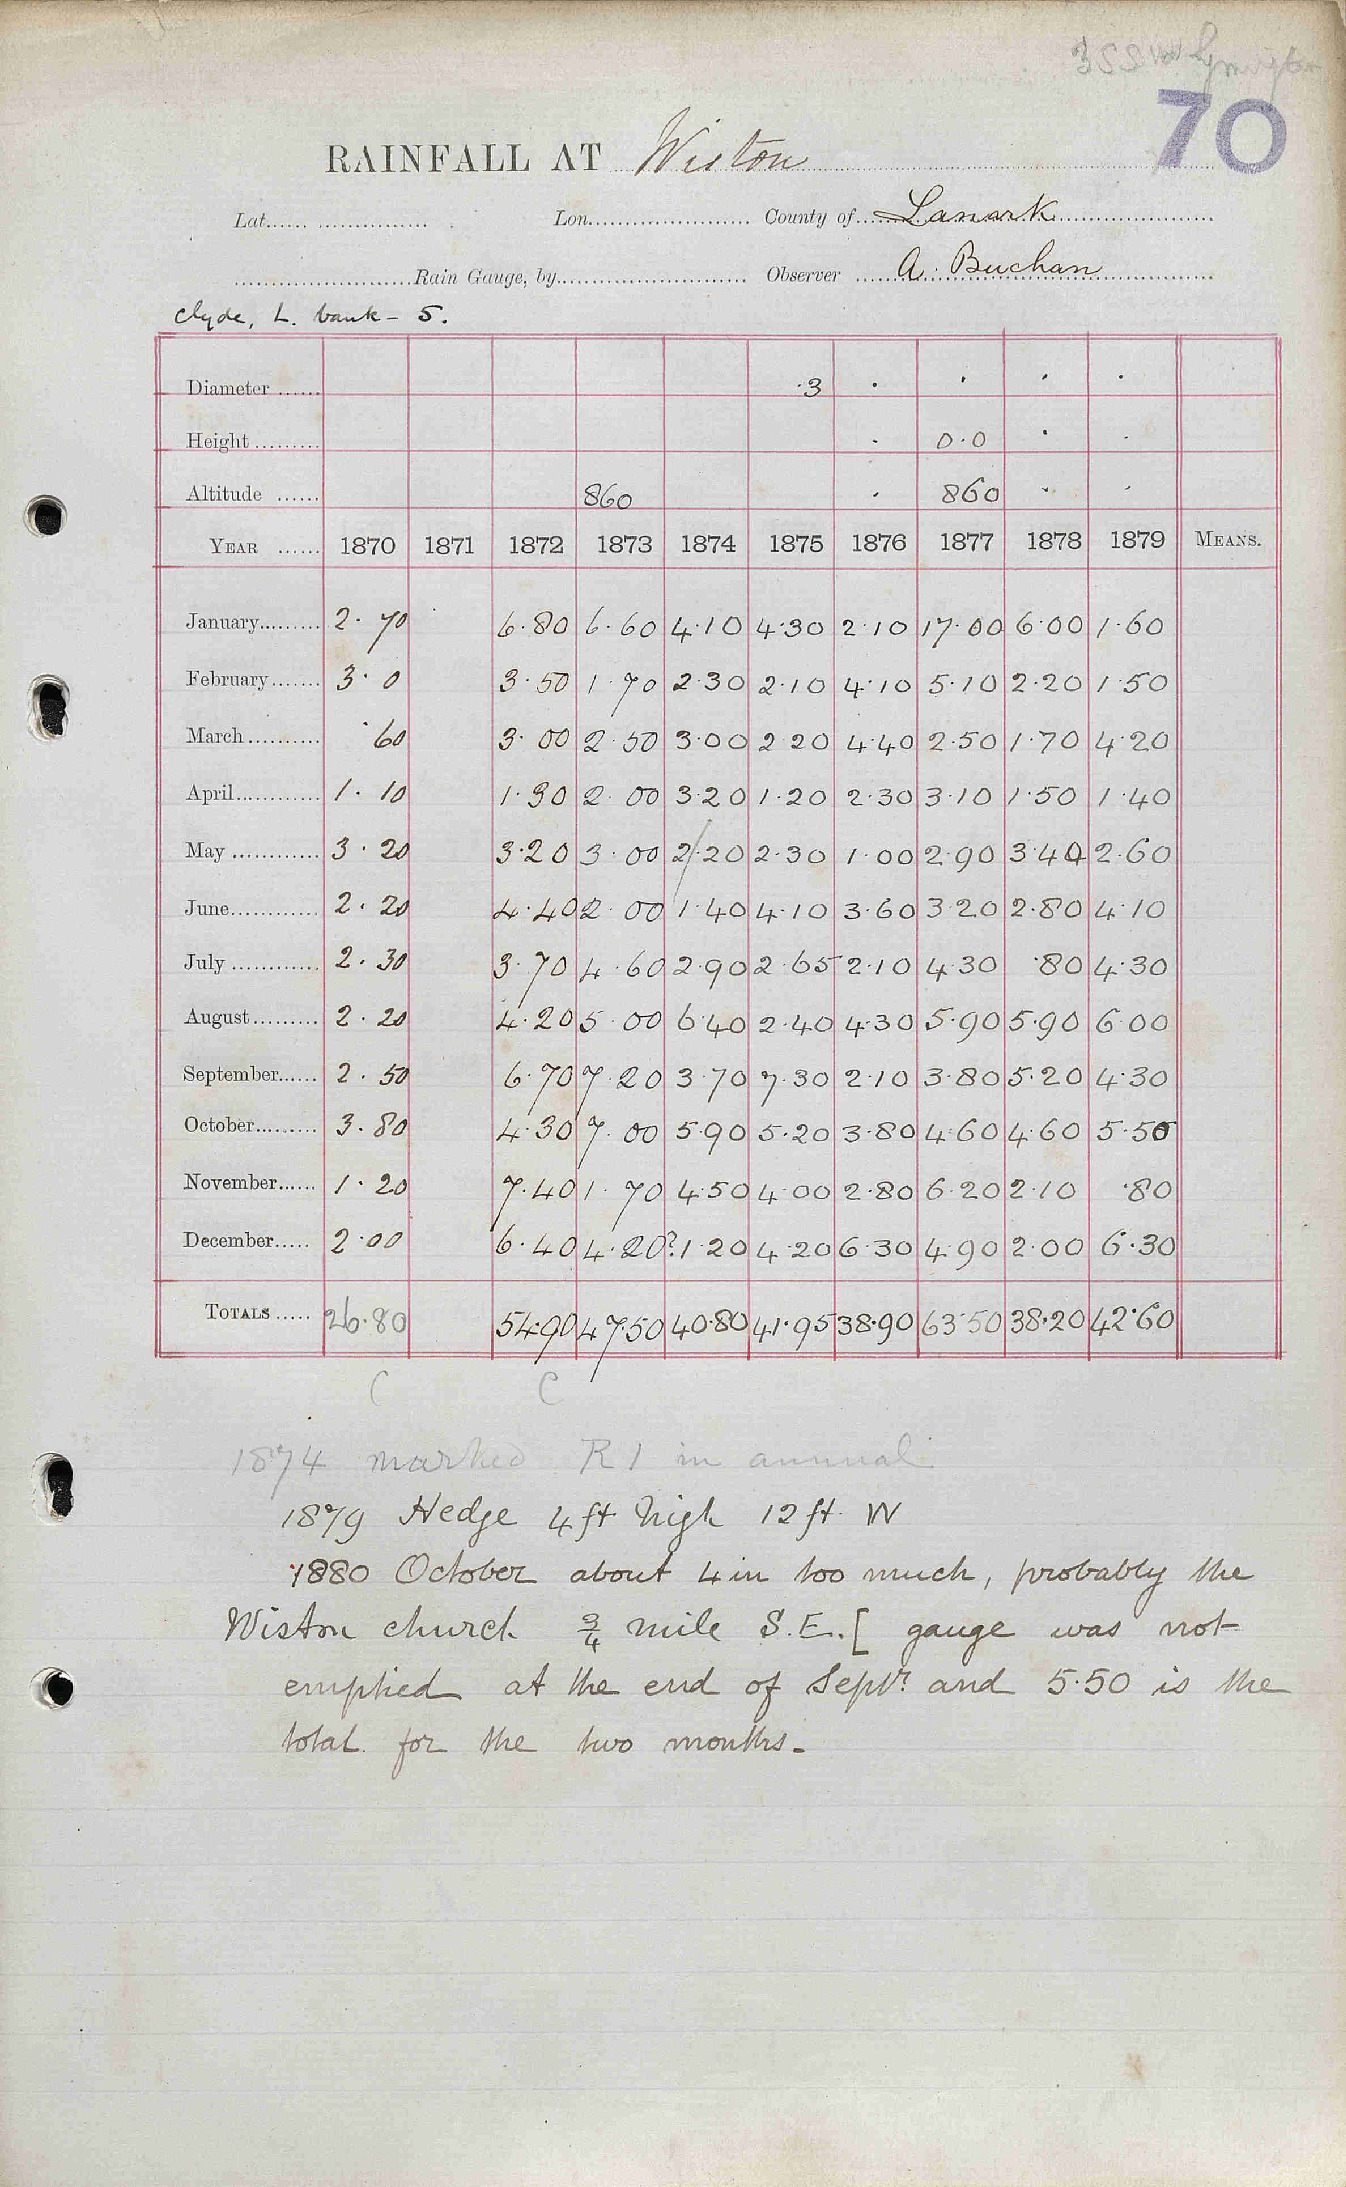 3 SSW Symington
70
RAINFALL AT Wiston
Lat. Lon. County of Lanark
Rain Gauge, by Observer A. Buchan
Clyde, L. bank - 5.
Diameter ·3 · · · ·
Height · 0·0 · ·
Altitude 860 · 860 · ·
YEAR 1870 1871 1872 1873 1874 1875 1876 1877 1878 1879 MEANS.
January 2·70 6·80 6·60 4·10 4·30 2·10 17·00 6·00 1·60
February 3·0 3·50 1·70 2·30 2·10 4·10 5·10 2·20 1·50
March ·60 3·00 2·50 3·00 2·20 4·40 2·50 1·70 4·20
April 1·10 1·30 2·00 3·20 1·20 2·30 3·10 1·50 1·40
May 3·20 3·20 3·00 2·20 2·30 1·00 2·90 3·40 2·60
June 2·20 4·40 2·00 1·40 4·10 3·60 3·20 2·80 4·10
July 2·30 3·70 4·60 2·90 2·65 2·10 4·30 ·80 4·30
August 2·20 4·20 5·00 6·40 2·40 4·30 5·90 5·90 6·00
September 2·50 6·70 7·20 3·70 7·30 2·10 3·80 5·20 4·30
October 3·80 4·30 7·00 5·90 5·20 3·80 4·60 4·60 5·50
November 1·20 7·40 1·70 4·50 4·00 2·80 6·20 2·10 ·80
December 2·00 6·40 4·20? 1·20 4·20 6·30 4·90 2·00 6·30
TOTALS 26·80 54·90 47·50 40·80 41·95 38·90 63·50 38·20 42·60
C C
1874 marked R I in annual
1879 Hedge 4 ft high 12 ft W
1880 October about 4 in too much, probably the
Wiston church 3/4 mile S.E. [ gauge was not
emptied at the end of Septr. and 5·50 is the
total for the two months.